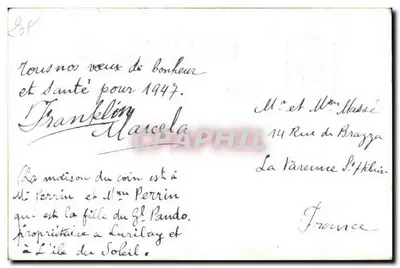 Tous nos vœux de bonheur
et santé pour 1947.
Franklin
Marcela
La maison du coin est à
Mr Perrin et Mme Perrin
qui est la fille du Gl Pando.
propriétaire a Lurilay et
à L'ile du Soleil.
Mr et Mme Massé
14 Rue de Brazza
La Varenne St Hilaire
France
CHAPITRE.COM